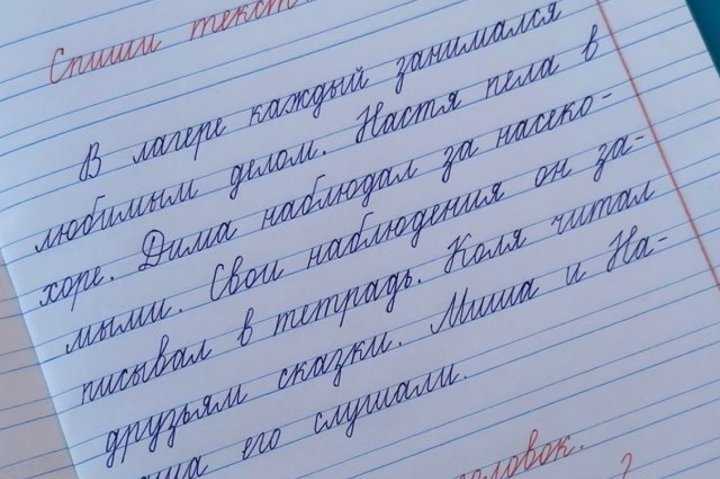 Спиши текст.
В лагере каждый занимался
любимым делом. Настя пела в
хоре. Дима наблюдал за насеко-
мыми. Свои наблюдения он за-
писывал в тетрадь. Коля читал
друзьям сказки. Миша и На-
его слушали.